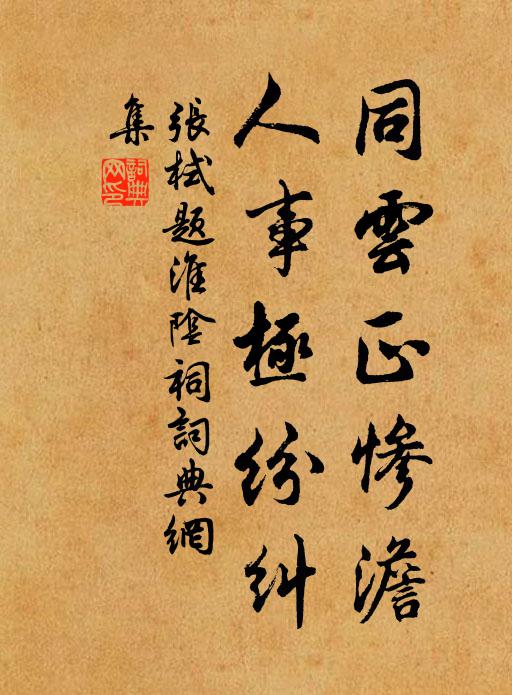 同雲正慘澹
人事極紛糾
張栻題淮陰祠詞典網
集
詞典網印